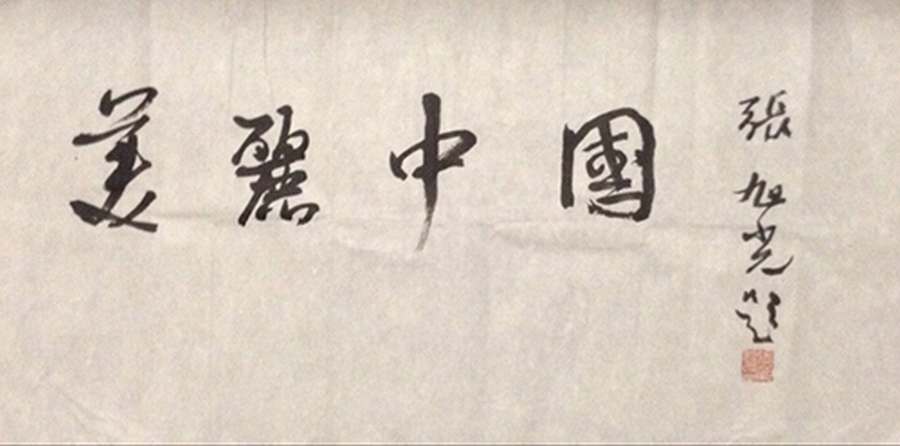 美麗中國
張旭光題